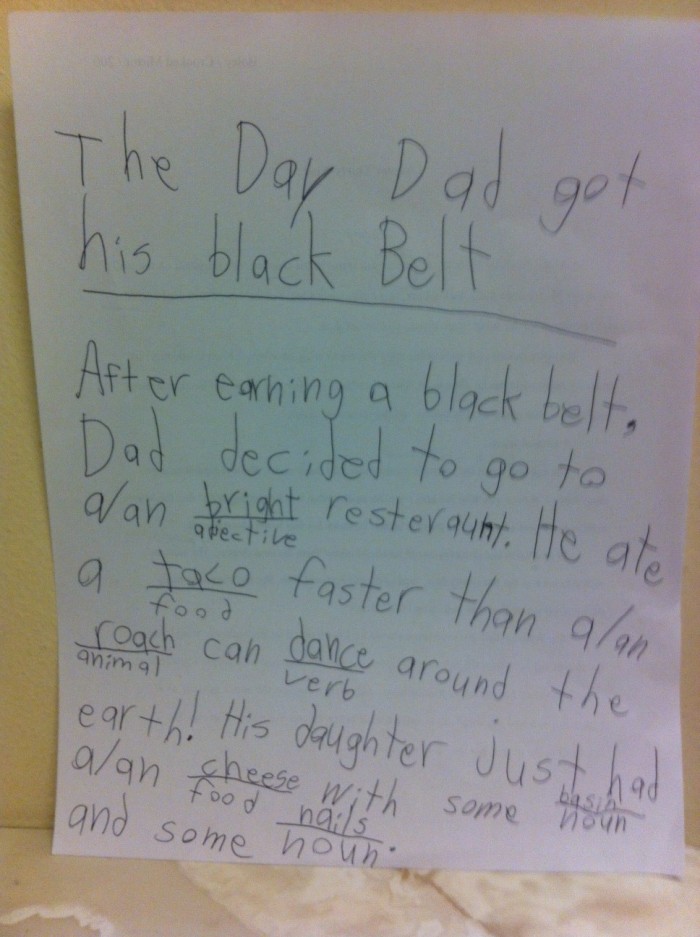 The Day Dad got
his black Belt
After earning a black belt,
Dad decided to go to
a/an bright resteraunt. He ate
adjective
a taco faster than a/an
food
roach can dance around the
animal verb
earth! His daughter just had
a/an cheese with some basin
food noun
and some nails.
noun